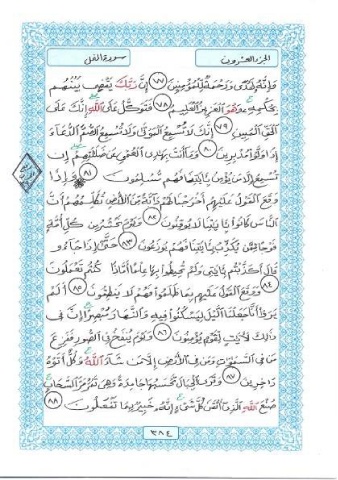 الجزء العشرون
سورة النمل
وَإِنَّهُ لَهُدًى وَرَحْمَةٌ لِّلْمُؤْمِنِينَ ٧٧ إِنَّ رَبَّكَ يَقْضِي بَيْنَهُم
بِحُكْمِهِ وَهُوَ الْعَزِيزُ الْعَلِيمُ ٧٨ فَتَوَكَّلْ عَلَى اللَّهِ إِنَّكَ عَلَى
الْحَقِّ الْمُبِينِ ٧٩ إِنَّكَ لَا تُسْمِعُ الْمَوْتَىٰ وَلَا تُسْمِعُ الصُّمَّ الدُّعَاءَ
إِذَا وَلَّوْا مُدْبِرِينَ ٨٠ وَمَا أَنتَ بِهَادِي الْعُمْيِ عَن ضَلَالَتِهِمْ إِن
تُسْمِعُ إِلَّا مَن يُؤْمِنُ بِآيَاتِنَا فَهُم مُّسْلِمُونَ ٨١ وَإِذَا
وَقَعَ الْقَوْلُ عَلَيْهِمْ أَخْرَجْنَا لَهُمْ دَابَّةً مِّنَ الْأَرْضِ تُكَلِّمُهُمْ أَنَّ
النَّاسَ كَانُوا بِآيَاتِنَا لَا يُوقِنُونَ ٨٢ وَيَوْمَ نَحْشُرُ مِن كُلِّ أُمَّةٍ
فَوْجًا مِّمَّن يُكَذِّبُ بِآيَاتِنَا فَهُمْ يُوزَعُونَ ٨٣ حَتَّىٰ إِذَا جَاءُو
قَالَ أَكَذَّبْتُم بِآيَاتِي وَلَمْ تُحِيطُوا بِهَا عِلْمًا أَمَّاذَا كُنتُمْ تَعْمَلُونَ
٨٤ وَوَقَعَ الْقَوْلُ عَلَيْهِم بِمَا ظَلَمُوا فَهُمْ لَا يَنطِقُونَ ٨٥ أَلَمْ
يَرَوْا أَنَّا جَعَلْنَا الَّيْلَ لِيَسْكُنُوا فِيهِ وَالنَّهَارَ مُبْصِرًا إِنَّ فِي
ذَٰلِكَ لَآيَاتٍ لِّقَوْمٍ يُؤْمِنُونَ ٨٦ وَيَوْمَ يُنفَخُ فِي الصُّورِ فَفَزِعَ
مَن فِي السَّمَٰوَٰتِ وَمَن فِي الْأَرْضِ إِلَّا مَن شَاءَ اللَّهُ وَكُلٌّ أَتَوْهُ
دَاخِرِينَ ٨٧ وَتَرَى الْجِبَالَ تَحْسَبُهَا جَامِدَةً وَهِيَ تَمُرُّ مَرَّ السَّحَابِ
صُنْعَ اللَّهِ الَّذِي أَتْقَنَ كُلَّ شَيْءٍ إِنَّهُ خَبِيرٌ بِمَا تَفْعَلُونَ ٨٨
٣٨٤